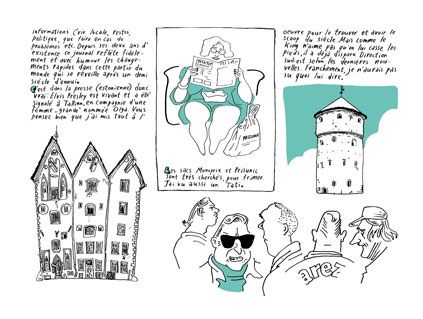 informations (vie locale, restos,
politique, que faire en cas de
problèmes etc. Depuis ses deux ans d'
existence ce journal reflète fidèle-
ment et avec humour les change-
ments rapides dans cette partie du
monde qui se réveille après un demi
siècle d'ennui.
C'est dans la presse (estonienne) donc
vrai. Elvis Presley est vivant et a été
signalé à Tallinn, en compagnie d'une
femme "grande" nommée Olga. Vous
pensez bien que j'ai mis tout à l'
oeuvre pour le trouver et avoir le
scoop du siècle. Mais comme le
King n'aime pas qu'on lui casse les
pieds, il a déjà disparu. Direction
sud-est selon les dernières nou-
velles. Franchement, je n'aurais pas
su quoi lui dire.
Les sacs Monoprix et Prisunic
sont très cherchés, pour frimer.
J'ai vu aussi un Tati.
area